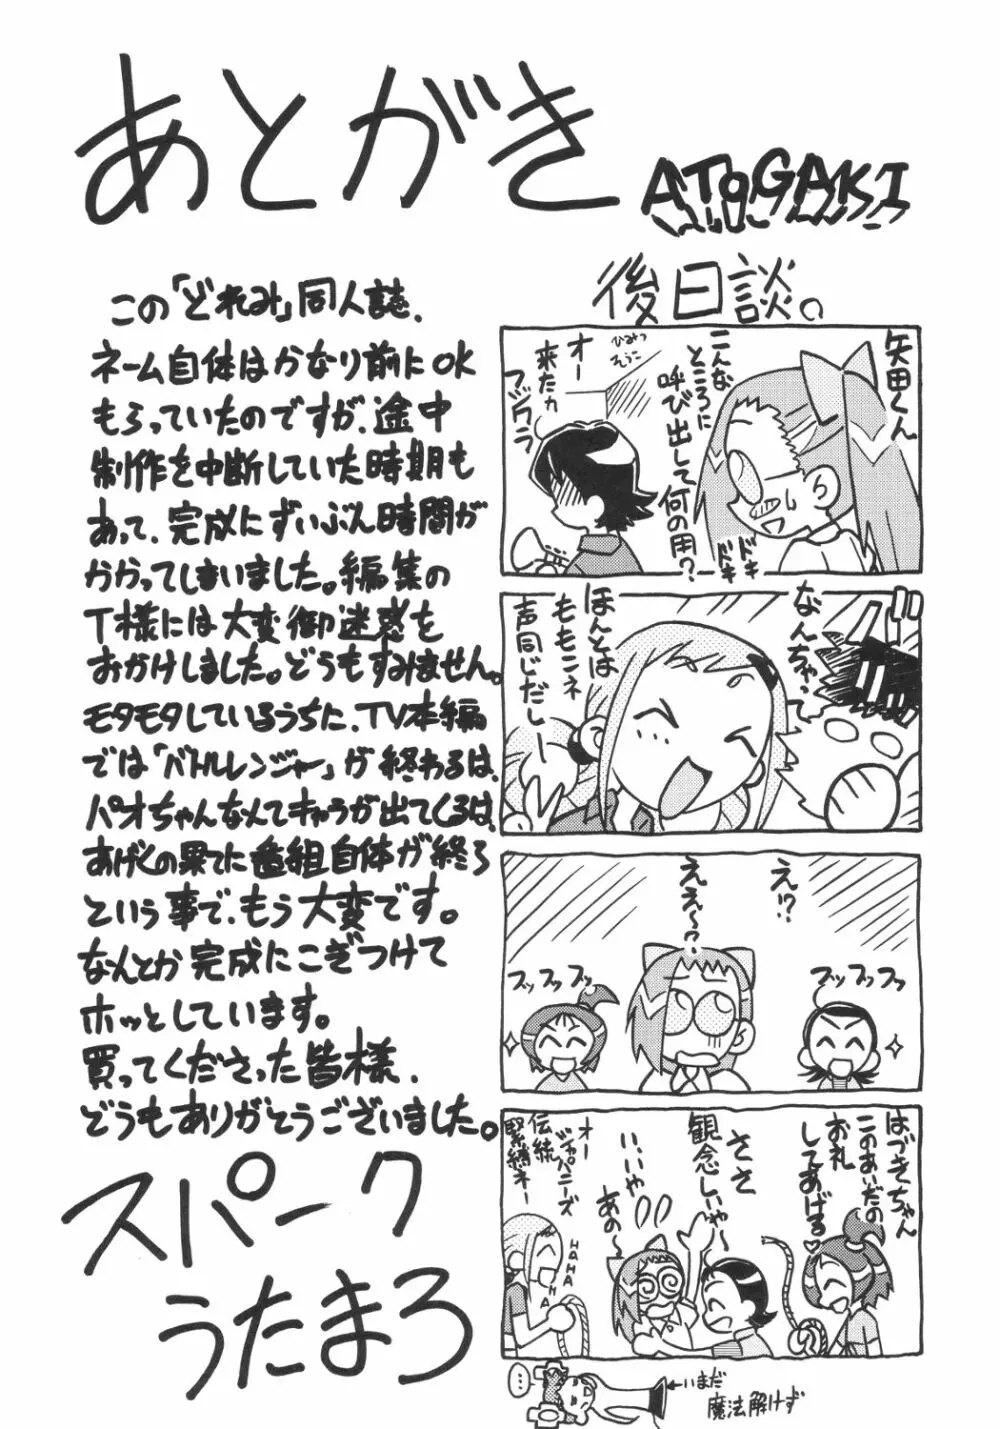 あとがき
ATOGAKI
この「どれみ」同人誌、
ネーム自体はかなり前にOK
もらっていたのですが、途中
制作を中断していた時期も
あって、完成にずいぶん時間が
かかってしまいました。編集の
T様には大変御迷惑を
おかけしました。どうもすみません。
モタモタしているうちに、TV本編
では「バトルレンジャー」が終わるは、
パオちゃんなんてキャラが出てくるは、
あげくの果てに番組自体が終る
という事で、もう大変です。
なんとか完成にこぎつけて
ホッとしています。
買ってくださった皆様、
どうもありがとうございました。
スパーク
うたまろ
後日談。
矢田くん
こんな
ところに
呼び出して
何の用?
ドキ
ドキ
ひみつ
そうこ
オー
来たカ
フッフラ
なんちゃって
ほんとは
ももこネ
声同じだしー
え!?
ええ〜?
プップップッ
プップップッ
はづきちゃん
このあいだの
お礼
してあげる♡
ささ
観念しぃや〜
いいや
あの〜
オー
ジャパニーズ
伝統
緊縛ネー
HAHA
HAHA
HA
…
←いまだ
魔法解けず